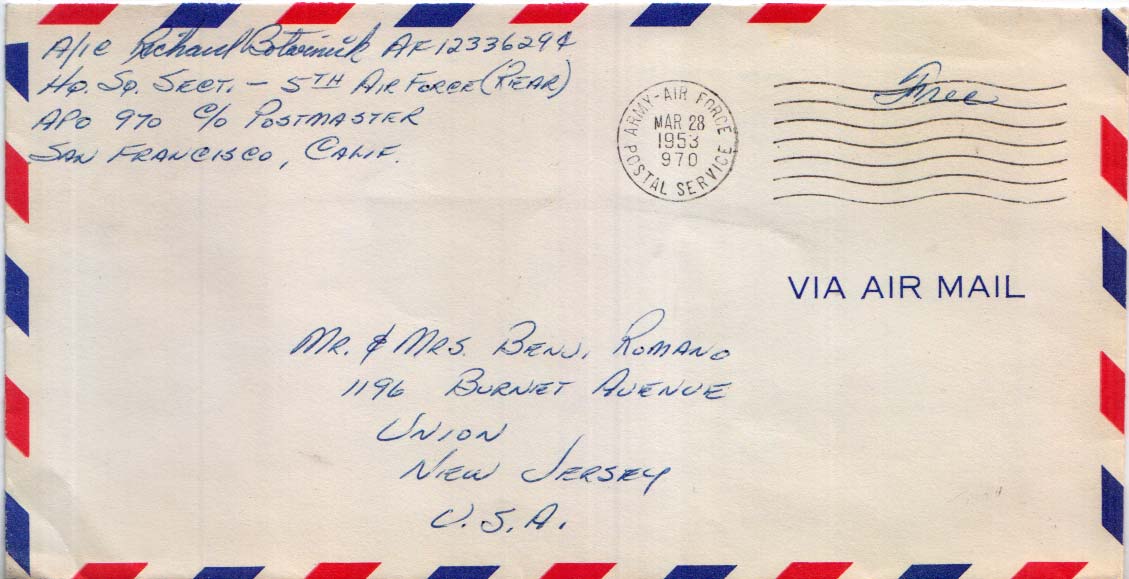 A/1C Richard Botwinik AF12336294
HQ. SQ. SECT. - 5TH AIR FORCE (REAR)
APO 970 C/O POSTMASTER
SAN FRANCISCO, CALIF.
ARMY-AIR FORCE
MAR 28
1953
970
POSTAL SERVICE
Free
VIA AIR MAIL
MR. & MRS. BENJ. ROMANO
1196 BURNET AVENUE
UNION
NEW JERSEY
U.S.A.